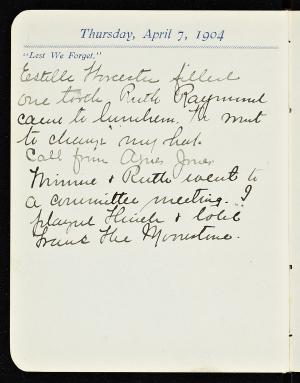 Thursday, April 7, 1904
"Lest We Forget."
Estelle Worcester filled
one tooth Ruth Raymond
came to luncheon. We went
to change my hat.
Call from Agnes Jones
Minnie & Ruth went to
a committee meeting. I
played Flinch & told
Frank the